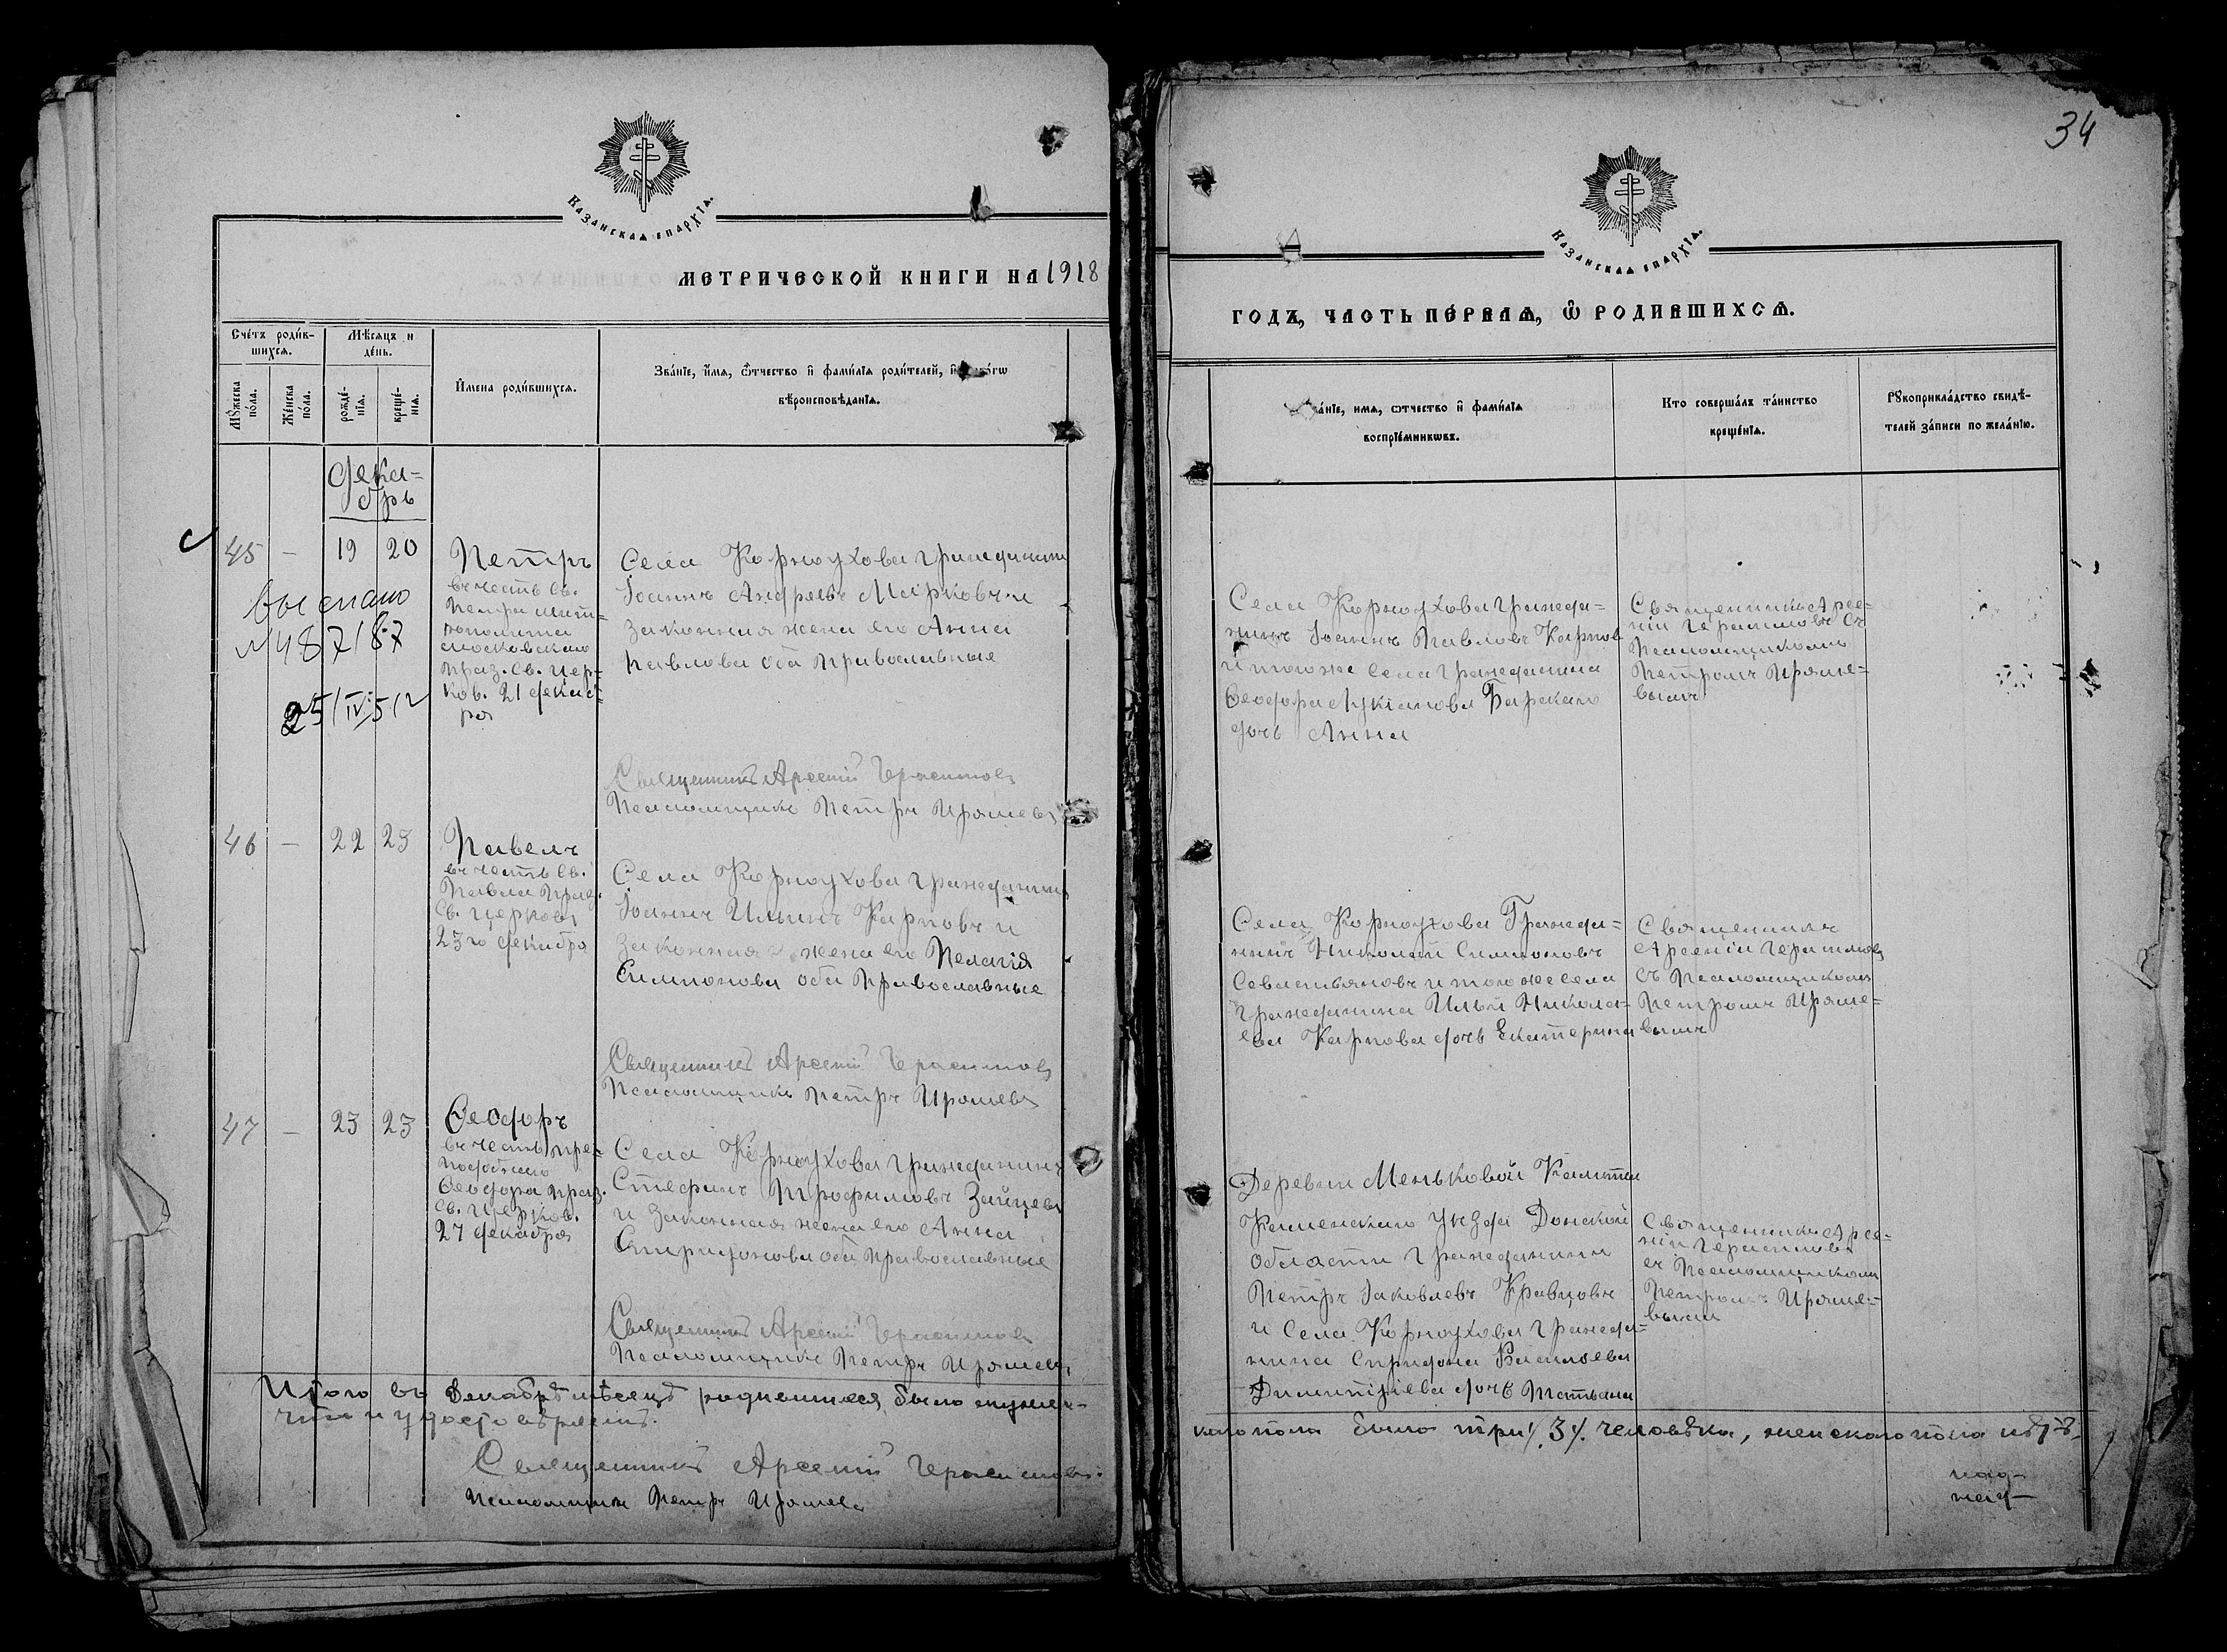 Казанская епархїа.
МЕТРИЧЕСКОЙ КНИГИ НА 1918
Счетъ родив-
шихся.
Мѣсяцъ и
день.
Мꙋжеска
пола.
Женска
пола.
рожде-
нїя.
креще-
нїя.
Имена родившихся.
Званїе, имя, ѿтчество и фамилїя родителей, и
вѣроисповѣданїя.
Дека-
брь
45 — 19 20
Петръ
въ честь Св.
Петра мит-
рополита
московскаго
праз. Св. Цер-
ков. 21 декаб-
ря
выслано
№ 487/87
25/IV-51 г
Села Корноухова гражданинъ
Іоаннъ Андреевъ Марковъ и
законная жена его Анна
Павлова оба православные
Священникъ Арсеній Герасимовъ
Псаломщикъ Петръ Ирошевъ
46 — 22 23
Павелъ
въ честь Св.
Павла праз.
Св. Церковь
23го декабря
Села Корноухова гражданинъ
Іоаннъ Ильинъ Карповъ и
законная жена его Пелагія
Симионова оба православные
Священникъ Арсеній Герасимовъ
Псаломщикъ Петръ Ирошевъ
47 — 23 23
Ѳеодоръ
въ честь пре-
подобнаго
Ѳеодора праз.
Св. Церков.
27 декабря
Села Корноухова гражданинъ
Стефанъ Трофимовъ Зайцевъ
и законная жена его Анна
Спиридонова оба православные
Священникъ Арсеній Герасимовъ
Псаломщикъ Петръ Ирошевъ
Итого въ Декабрѣ мѣсяцѣ родившихся было мужес-
Священникъ Арсеній Герасимовъ.
Псаломщикъ Петръ Ирошевъ
34
Казанская епархїа.
ГОДЪ, ЧАСТЬ ПЕРВАЯ, Ѡ РОДИВШИХСЯ.
Званїе, имя, ѿтчество и фамилїя
воспрїемникѡвъ.
Кто совершалъ таинство
крещенїя.
Рꙋкоприкладство свидѣ-
телей записи по желанїю.
Села Корноухова гражда-
нинъ Іоаннъ Павловъ Карпов
и того же села гражданина
Ѳеодора Лукіанова Барскаго
дочь Анна
Священникъ Арсе-
ній Герасимовъ съ
Псаломщикомъ
Петромъ Ироше-
вымъ
Села Корноухова Гражда-
нинъ Николай Симионовъ
Севастьяновъ и того же села
гражданина Ильи Никола-
ева Карпова дочь Екатерина
Священникъ
Арсеній Герасимовъ
съ Псаломщикомъ
Петромъ Ироше-
вымъ
Деревни Меньковой
Каменскаго уѣзда Донской
области гражданинъ
Петръ Іаковлевъ Кравцовъ
и Села Корноухова гражда-
нина Спиридона Васильева
Димитріева дочь Татьяна
Священникъ Арсе-
ній Герасимовъ
съ Псаломщикомъ
Петромъ Ироше-
вымъ
каго пола было три /.3/. человѣка, женскаго пола нѣтъ.